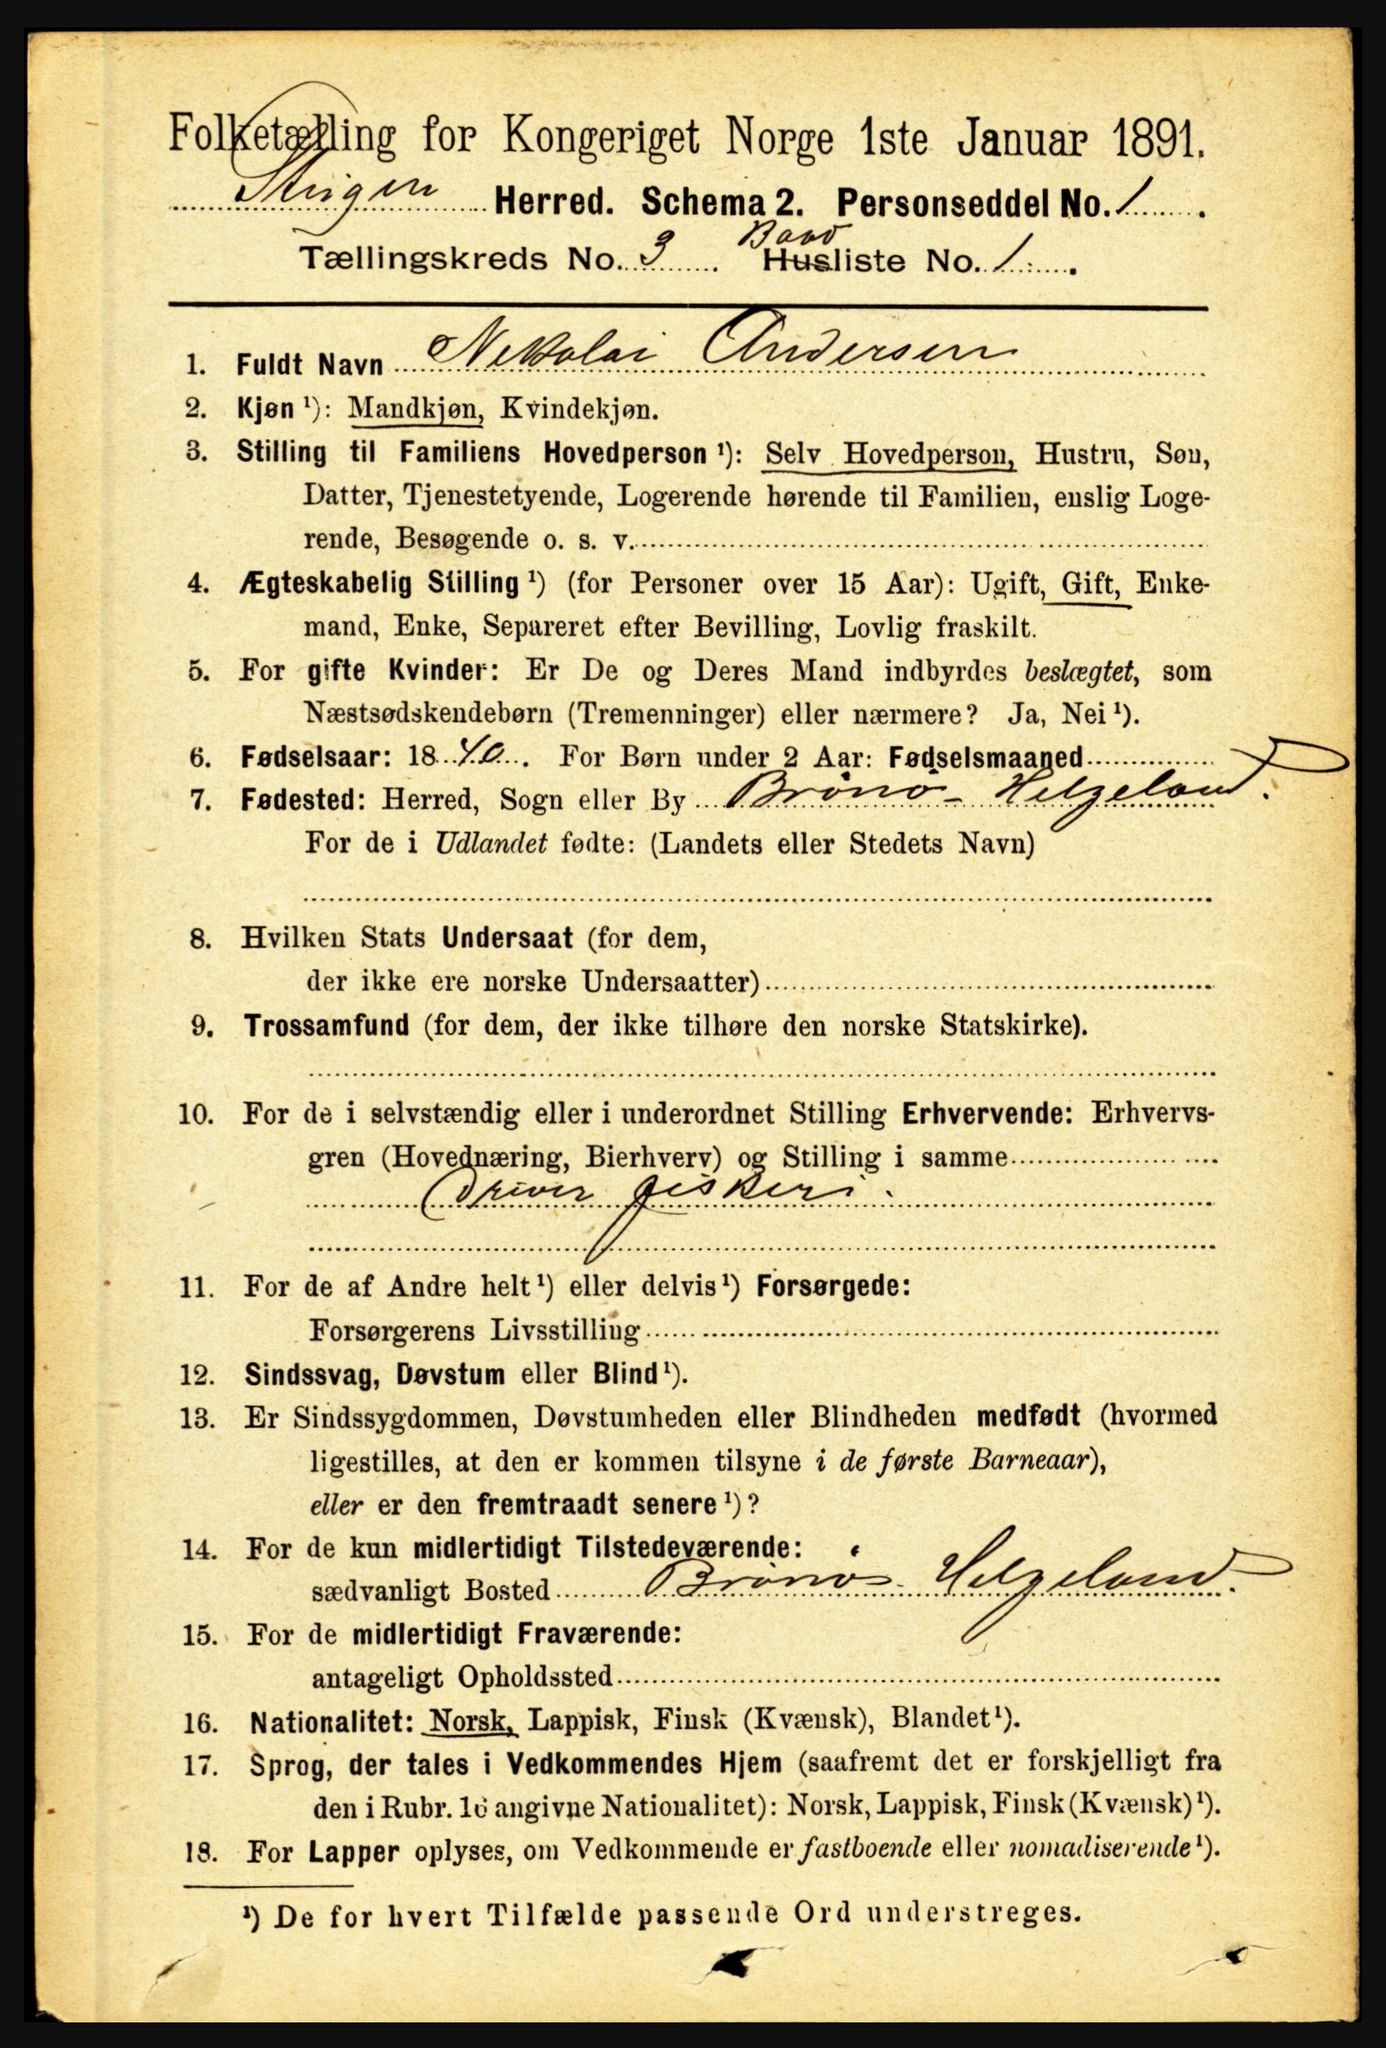 Folketælling for Kongeriget Norge 1ste Januar 1891.
Steigen Herred. Schema 2. Personseddel No. 1.
Baad
Tællingskreds No. 3. Husliste No. 1.
1. Fuldt Navn Nikolai Andersen
2. Kjøn ¹): Mandkjøn, Kvindekjøn.
3. Stilling til Familiens Hovedperson ¹): Selv Hovedperson, Hustru, Søn,
Datter, Tjenestetyende, Logerende hørende til Familien, enslig Loge-
rende, Besøgende o. s. v.
4. Ægteskabelig Stilling ¹) (for Personer over 15 Aar): Ugift, Gift, Enke-
mand, Enke, Separeret efter Bevilling, Lovlig fraskilt.
5. For gifte Kvinder: Er De og Deres Mand indbyrdes beslægtet, som
Næstsødskendebørn (Tremenninger) eller nærmere? Ja, Nei ¹).
6. Fødselsaar: 1840. For Børn under 2 Aar: Fødselsmaaned
7. Fødested: Herred, Sogn eller By Brønø Helgeland.
For de i Udlandet fødte: (Landets eller Stedets Navn)
8. Hvilken Stats Undersaat (for dem,
der ikke ere norske Undersaatter)
9. Trossamfund (for dem, der ikke tilhøre den norske Statskirke).
10. For de i selvstændig eller i underordnet Stilling Erhvervende: Erhvervs-
gren (Hovednæring, Bierhverv) og Stilling i samme
Driver fiskeri.
11. For de af Andre helt ¹) eller delvis ¹) Forsørgede:
Forsørgerens Livsstilling
12. Sindssvag, Døvstum eller Blind ¹).
13. Er Sindssygdommen, Døvstumheden eller Blindheden medfødt (hvormed
ligestilles, at den er kommen tilsyne i de første Barneaar),
eller er den fremtraadt senere ¹)?
14. For de kun midlertidigt Tilstedeværende:
sædvanligt Bosted Brønø Helgeland.
15. For de midlertidigt Fraværende:
antageligt Opholdssted
16. Nationalitet: Norsk, Lappisk, Finsk (Kvænsk), Blandet ¹).
17. Sprog, der tales i Vedkommendes Hjem (saafremt det er forskjelligt fra
den i Rubr. 16 angivne Nationalitet): Norsk, Lappisk, Finsk (Kvænsk) ¹).
18. For Lapper oplyses, om Vedkommende er fastboende eller nomadiserende ¹).
¹) De for hvert Tilfælde passende Ord understreges.